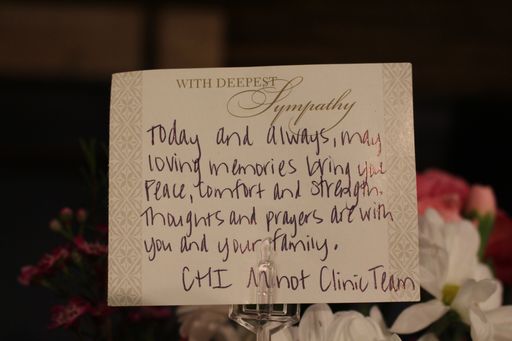 WITH DEEPEST
Sympathy
Today and always, may
loving memories bring you
Peace, Comfort and Strength.
Thoughts and prayers are with
you and your family.
CHI Minot Clinic Team